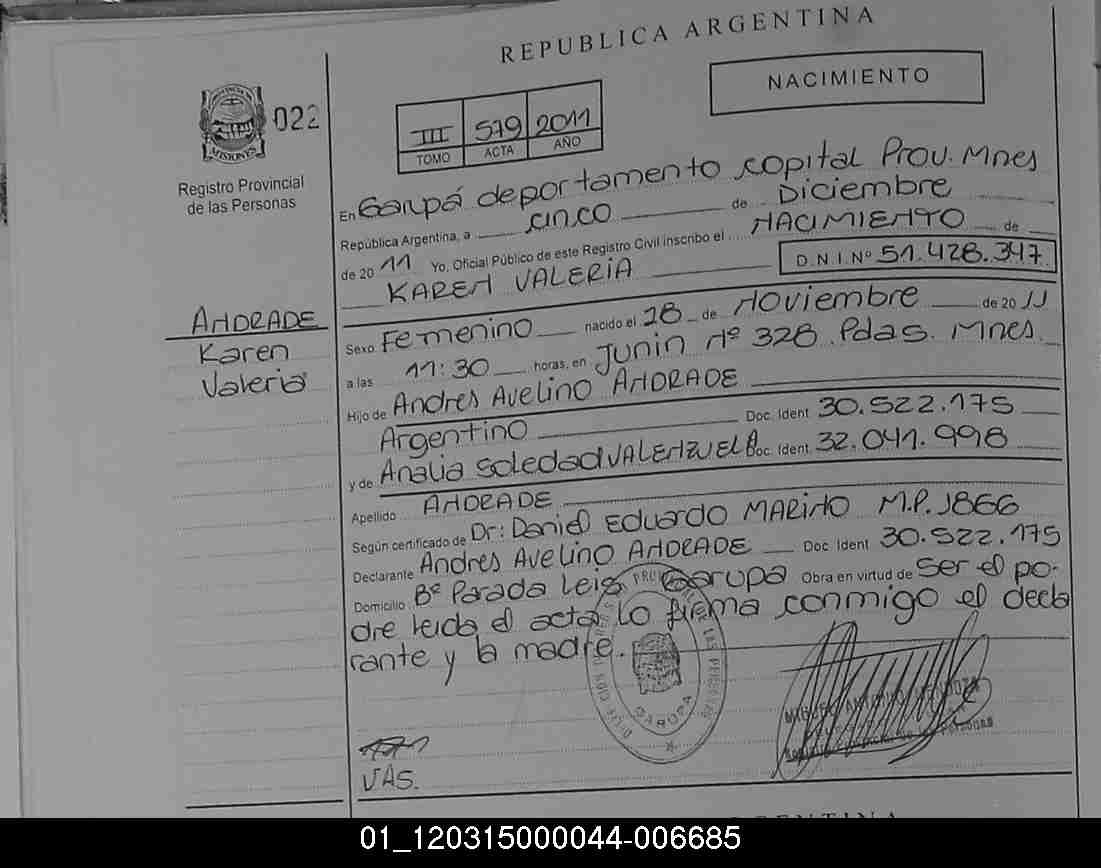 REPUBLICA ARGENTINA
NACIMIENTO
022
MISIONES
Registro Provincial
de las Personas
III 579 2011
TOMO ACTA AÑO
En Garupá departamento capital Prov. Mnes
República Argentina, a cinco de Diciembre
de 2011 Yo, Oficial Público de este Registro Civil inscribo el NACIMIENTO de
KAREN VALERIA D.N.I.Nº 51.428.347
ANDRADE
Karen
Valeria
Sexo Femenino nacido el 28 de Noviembre de 2011
a las 11:30 horas, en Junin nº 328 Pdas. Mnes.
Hijo de Andres Avelino ANDRADE
Argentino Doc. Ident 30.522.175
y de Analia Soledad VALENZUELA Doc. Ident. 32.041.998
Apellido ANDRADE
Según certificado de Dr: Daniel Eduardo MARINO M.P. 1866
Declarante Andres Avelino ANDRADE Doc Ident 30.522.175
Domicilio Bº Parada Leis Garupa Obra en virtud de Ser el pa-
dre leida el acta lo firma conmigo el decla
rante y la madre.
GARUPA
MIGUEL ANTONIO MENDOZA
VAS.
01_120315000044-006685